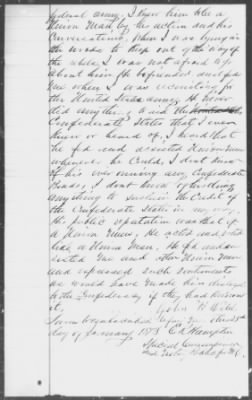 Federal army, I knew him to be a
Union Man by his action and his
Conversation. When I was lying in
the woods to keep out of the way of
the rebels, I was not afraid of
about him. He befriended and fed
me when I was recruiting for
the United States army. He never
did anything to aid the
Confederate States that I ever
knew or heard of. I heard that
he fed and assisted Union men
whenever he could. I dont know
of his ever owning any Confederate
Bonds. I dont know of his doing
anything to sustain the Credit of
the Confederate States in any way.
His public reputation was that of
a Union Man. He acted and voted
like a Union Man. He fed and as
sisted me and other Union Men
and expressed such sentiments
as would have made him disloyal
to the Confederacy if they had known
it. John H.
Sworn to and subscribed before me this
day of January 1873 Hampton
Special Commissioner
N.C.